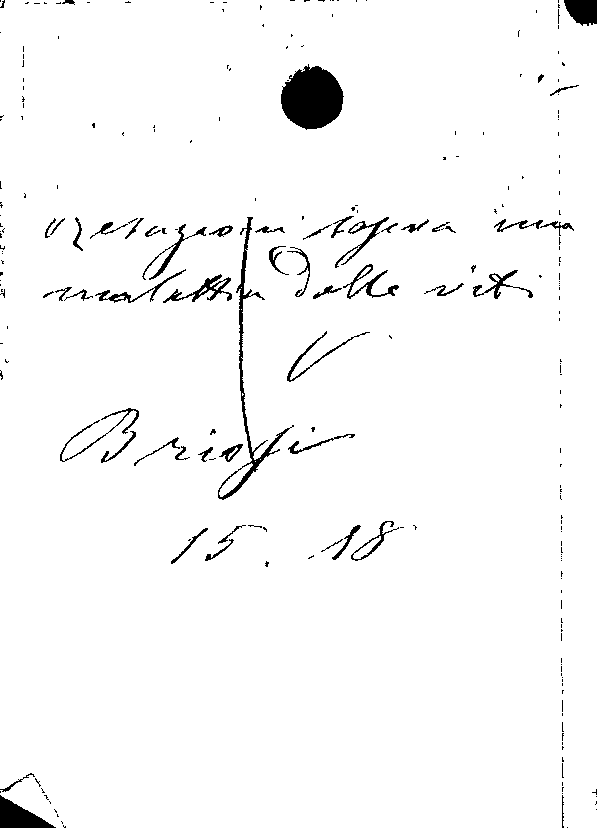 Relazioni sopra una
malattia delle viti
V
Briosi
15. 18